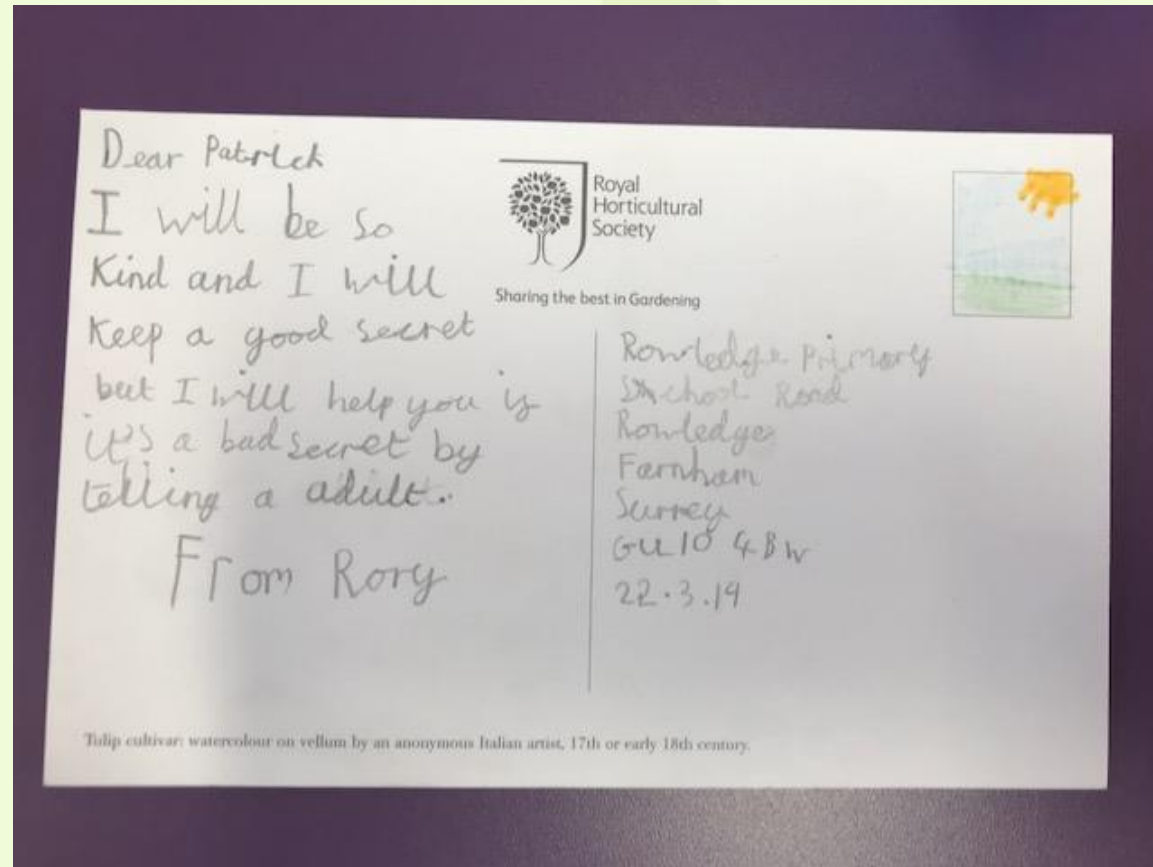 Dear Patrick
I will be so
Kind and I will
Keep a good secret
but I will help you is
it's a bad secret by
telling a adult.
From Rory
Royal
Horticultural
Society
Sharing the best in Gardening
Rowledge primary
School Road
Rowledge
Farnham
Surrey
GU10 4BW
22.3.19
Tulip cultivar: watercolour on vellum by an anonymous Italian artist, 17th or early 18th century.